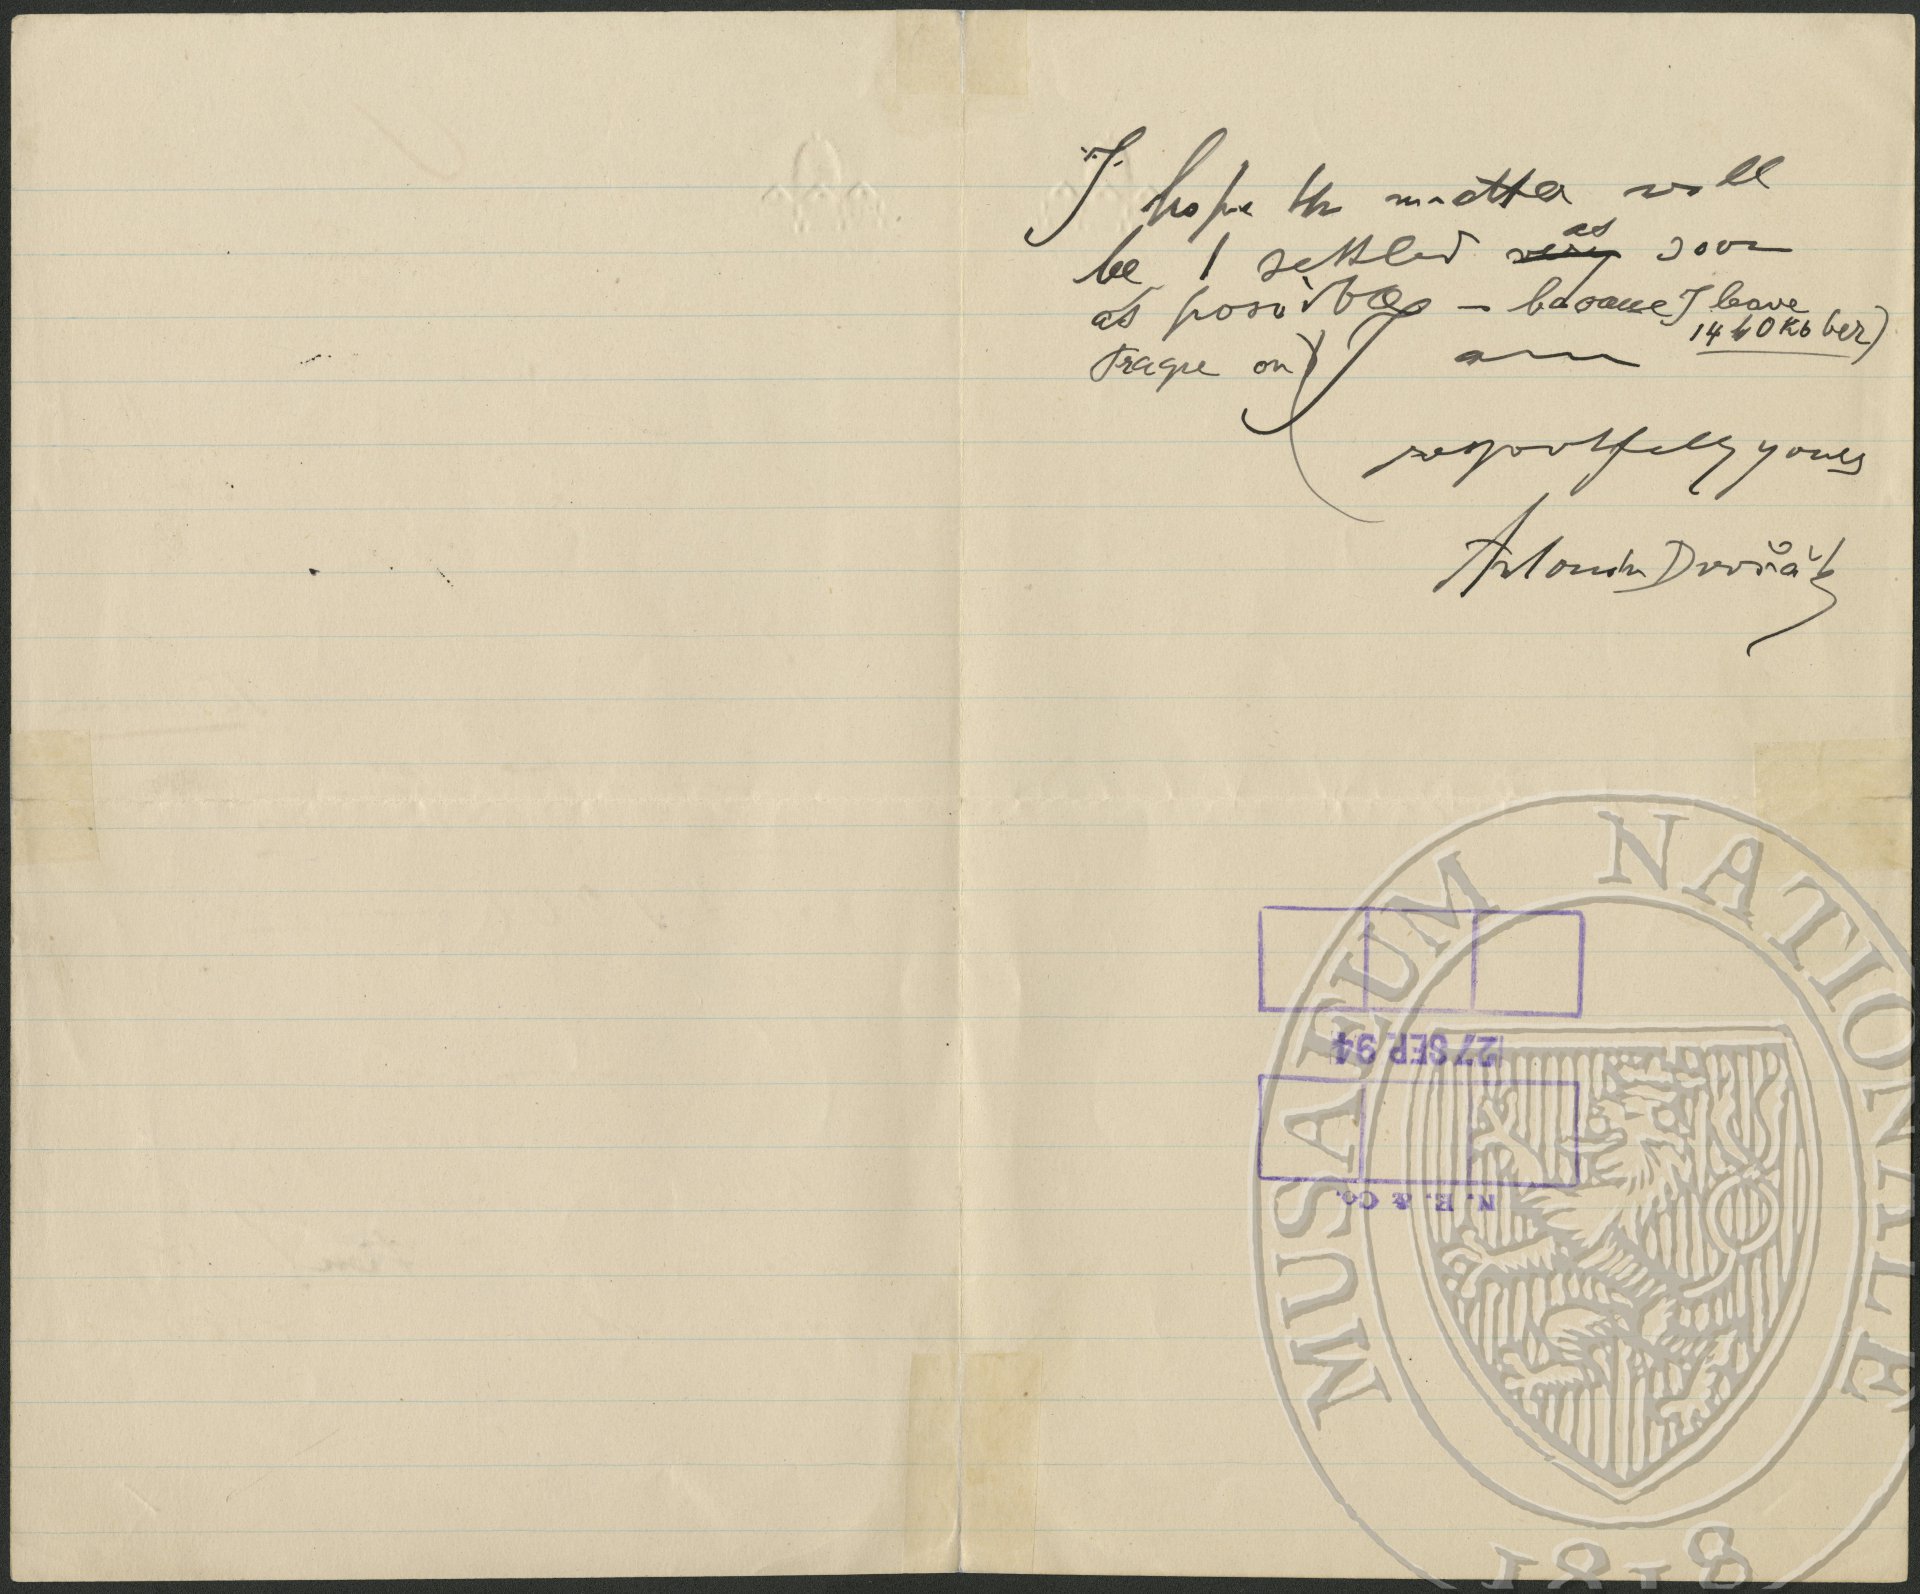 I hope the matter will
be settled ~~very~~ as soon
as possible – because I leave
Prague on 14 h Oktober)
I am
respectfully yours
Antonín Dvořák
27 SEP. 94
N. E. & Co.
MUSAEUM NATIONALE
1818